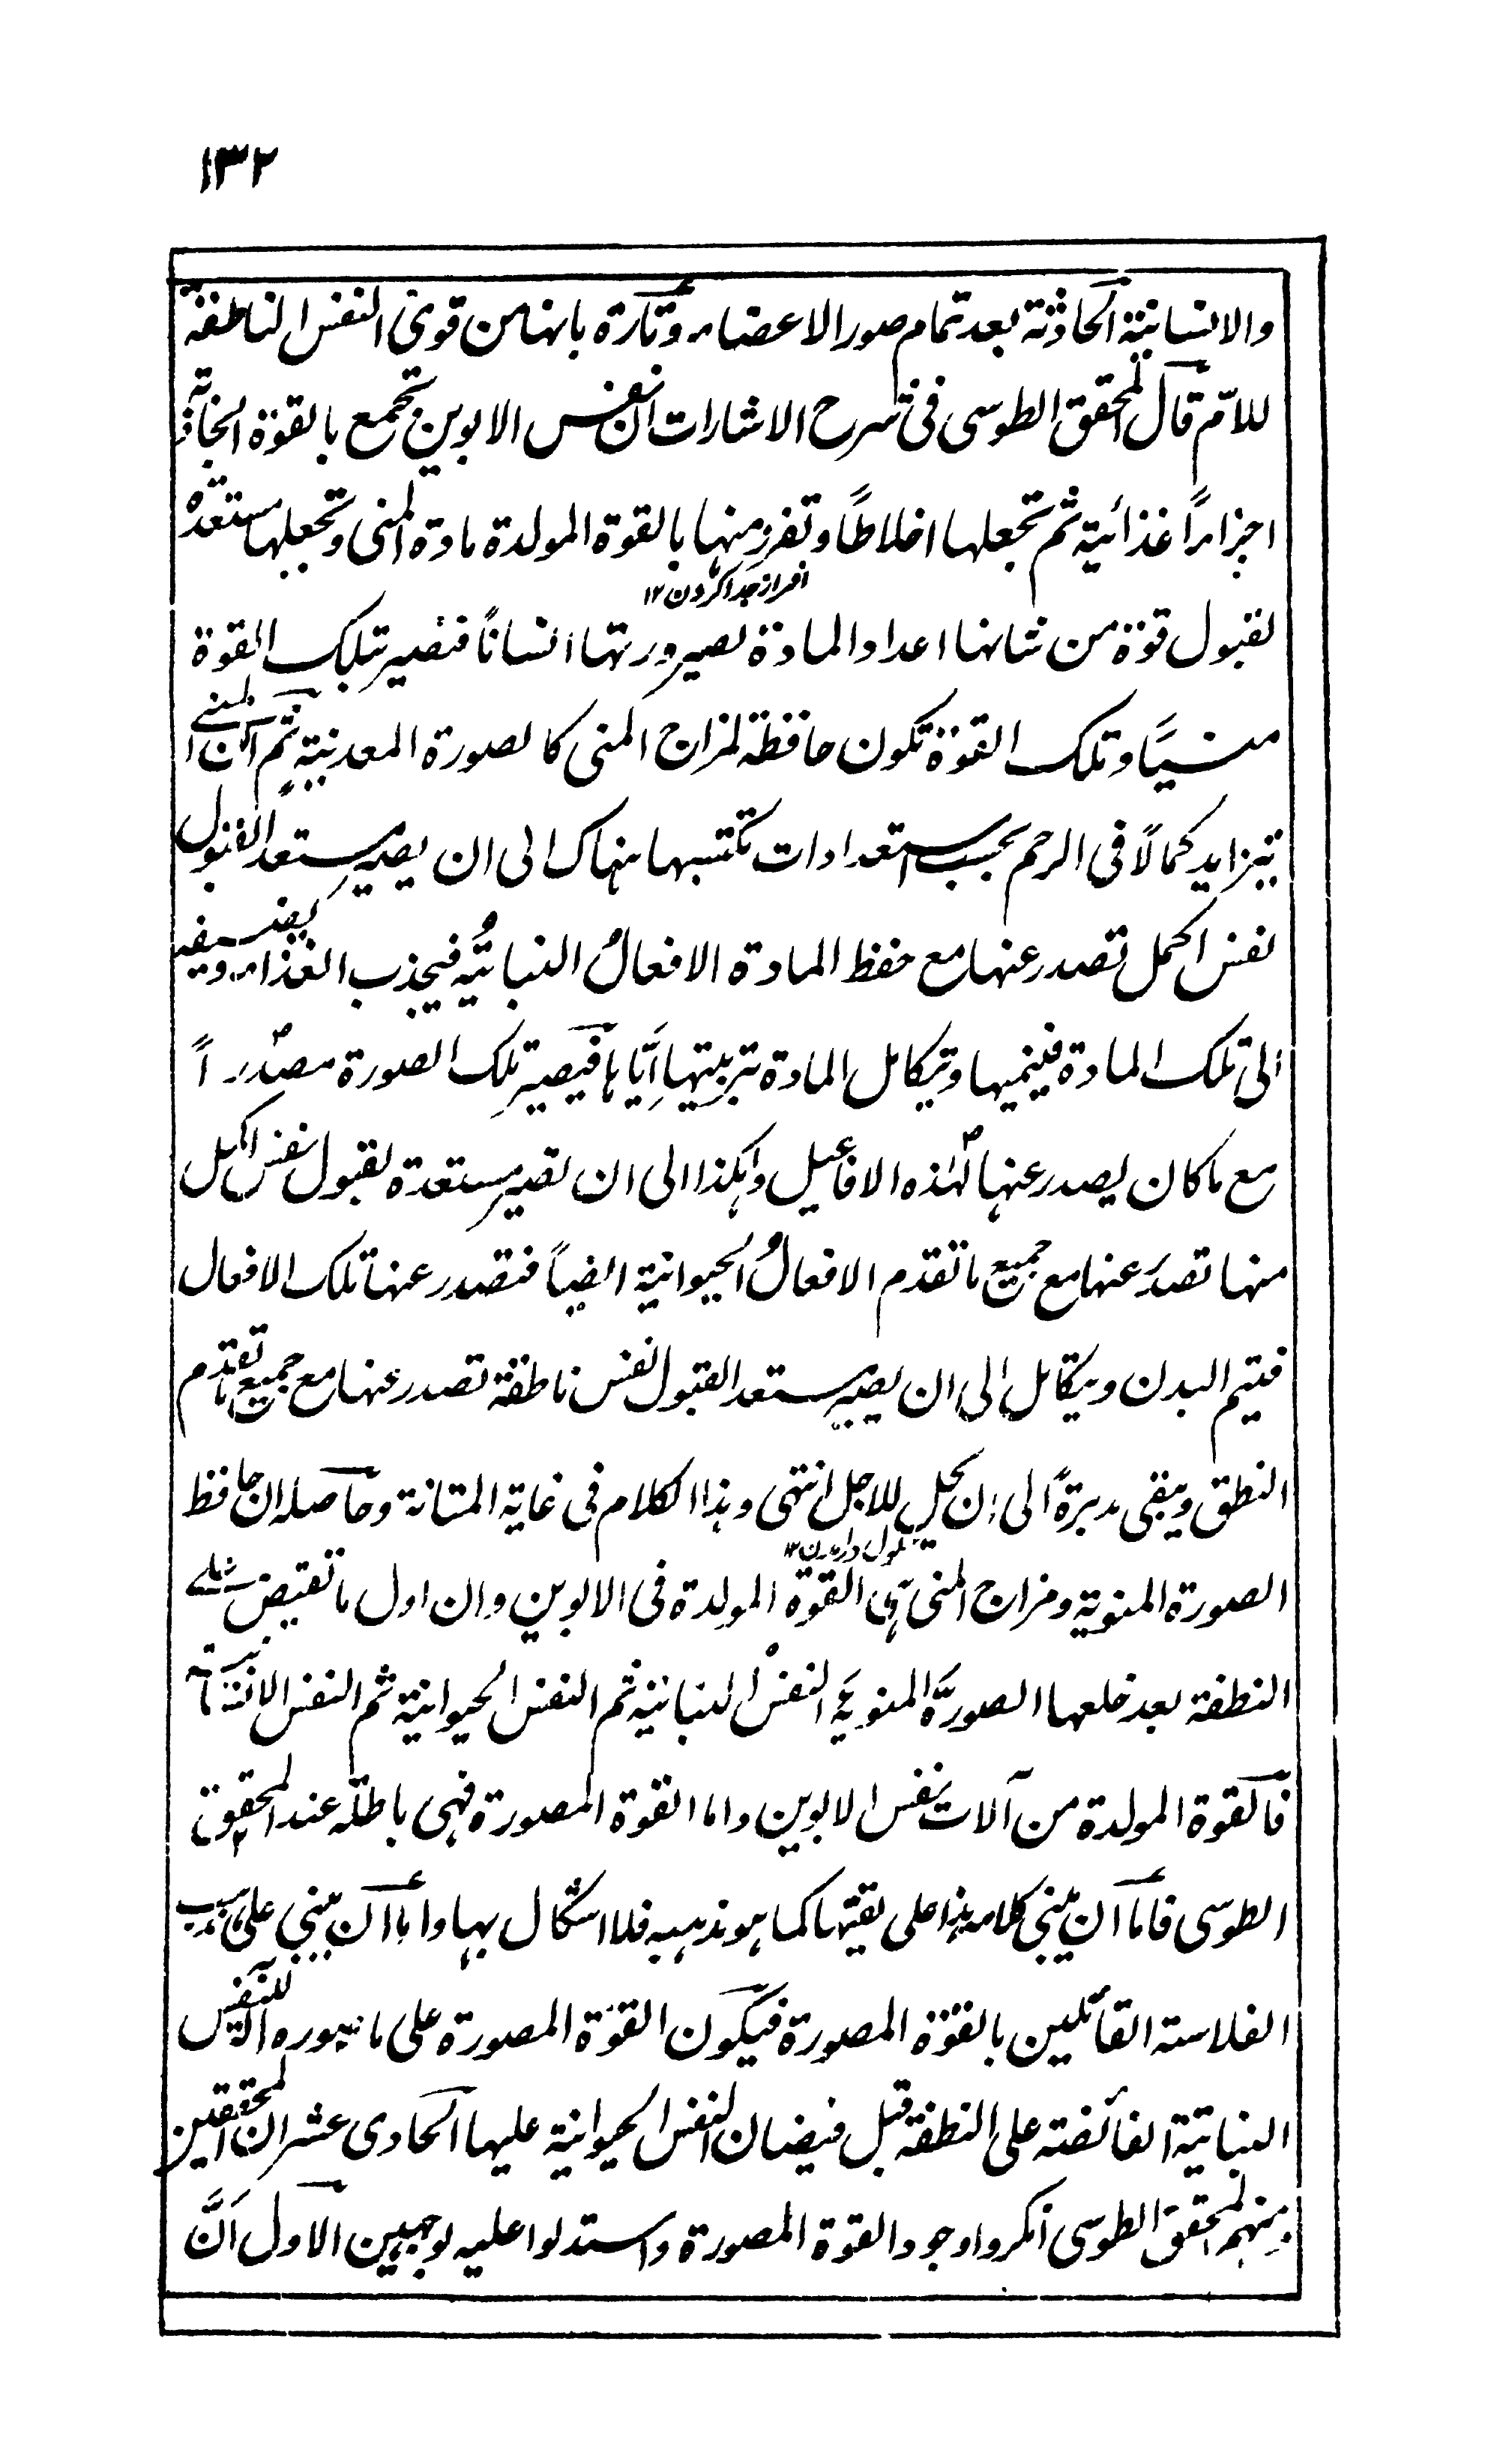 ١٣٢
والانسانية الحادثة بعد تمام صور الاعضاء وتارة بانها من قوى النفس الناطقة
للام قال المحقق الطوسى فى شرح الاشارات ان نفس الابوين تجمع بالقوة الجاذبة
اجزاءً غذائية ثم تجعلها اخلاطًا وتفرز منها بالقوة المولدة مادة المنى وتجعلها مستعدة
افراز جدا کردن ١٢
لقبول قوة من شانها اعداد المادة لصيرورتها انسانًا فتصير بتلك القوة
منيًا وتلك القوة تكون حافظة لمزاج المنى كالصورة المعدنية ثم ان المنے
يتزايد كمالًا فى الرحم بحسب استعدادات تكتسبها هناك الى ان يصير مستعدا لقبول
نفس اكمل تصدر عنها مع حفظ المادة الافعالُ النباتيُّه فيجذب الغذاء ويضيفه
الى تلك المادة فينميها وتيكامل المادة بتربيتها اِيّاها فيصير تلك الصورة مصدرًا
مع ما كان يصدر عنها لهٰذه الافاعيل وهكذا الى ان تصير مستعدة لقبول نفس اكمل
منها تصدر عنها مع جميع ما تقدم الافعالُ الحيوانية ايضاً فتصدر عنها تلك الافعال
فيتم البدن ويتكامل الى ان يصير مستعدا لقبول نفس ناطقة تصدر عنها مع جميع ما تقدم
النطق ويبقى مدبرةً الى ان يحل للاجل انتهى وهذا الكلام فى غاية المتانة وحاصله ان حافظ
الصورة المنوية ومزاج المنى هى القوة المولدة فى الابوين وان اول ما تفيض علے
النطفة بعد خلعها الصورةَ المنويةَ النفسُ النباتية ثم النفس الحيوانية ثم النفس الانسانية
فالقوة المولدة من آلات نفس الابوين واما القوة المصورة فهى باطلة عند المحقق
الطوسى فاما ان يبنى كلامه هذا على نفيها كما هو مذهبه فلا اشكال بها واما ان يبنى على مذهب
الفلاسفة القائلين بالقوة المصورة فيكون القوة المصورة على ما يصوره آلة للنفس
النباتية الفائضة على النطفة قبل فيضان النفس الحيوانية عليها الحادى عشر ان المحققين
ومنهم المحقق الطوسى انكروا وجود القوة المصورة واستدلوا عليه بوجهين الاول اَنَّ